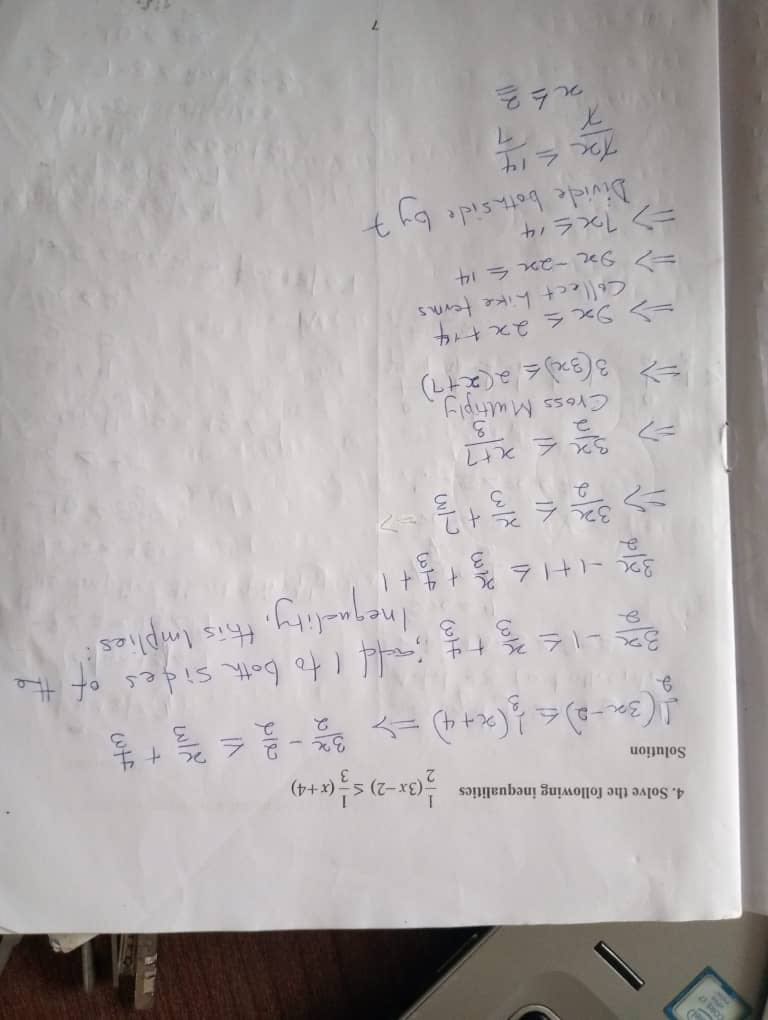 4. Solve the following inequalities 1/2(3x−2) ≤ 1/3(x+4)
Solution
1/2(3x-2) ≤ 1/3(x+4) => 3x/2 - 2/2 ≤ x/3 + 4/3
3x/2 -1 ≤ x/3 + 4/3 ; add 1 to both sides of the
Inequality, this Implies:
3x/2 -1+1 ≤ x/3 + 4/3 + 1
=> 3x/2 ≤ x/3 + 7/3 =>
=> 3x/2 ≤ x+7/3
Cross Multiply
=> 3(3x) ≤ 2(x+7)
=> 9x ≤ 2x + 14
Collect Like terms
=> 9x - 2x ≤ 14
=> 7x ≤ 14
Divide both side by 7
7x/7 ≤ 14/7
x ≤ 2
7